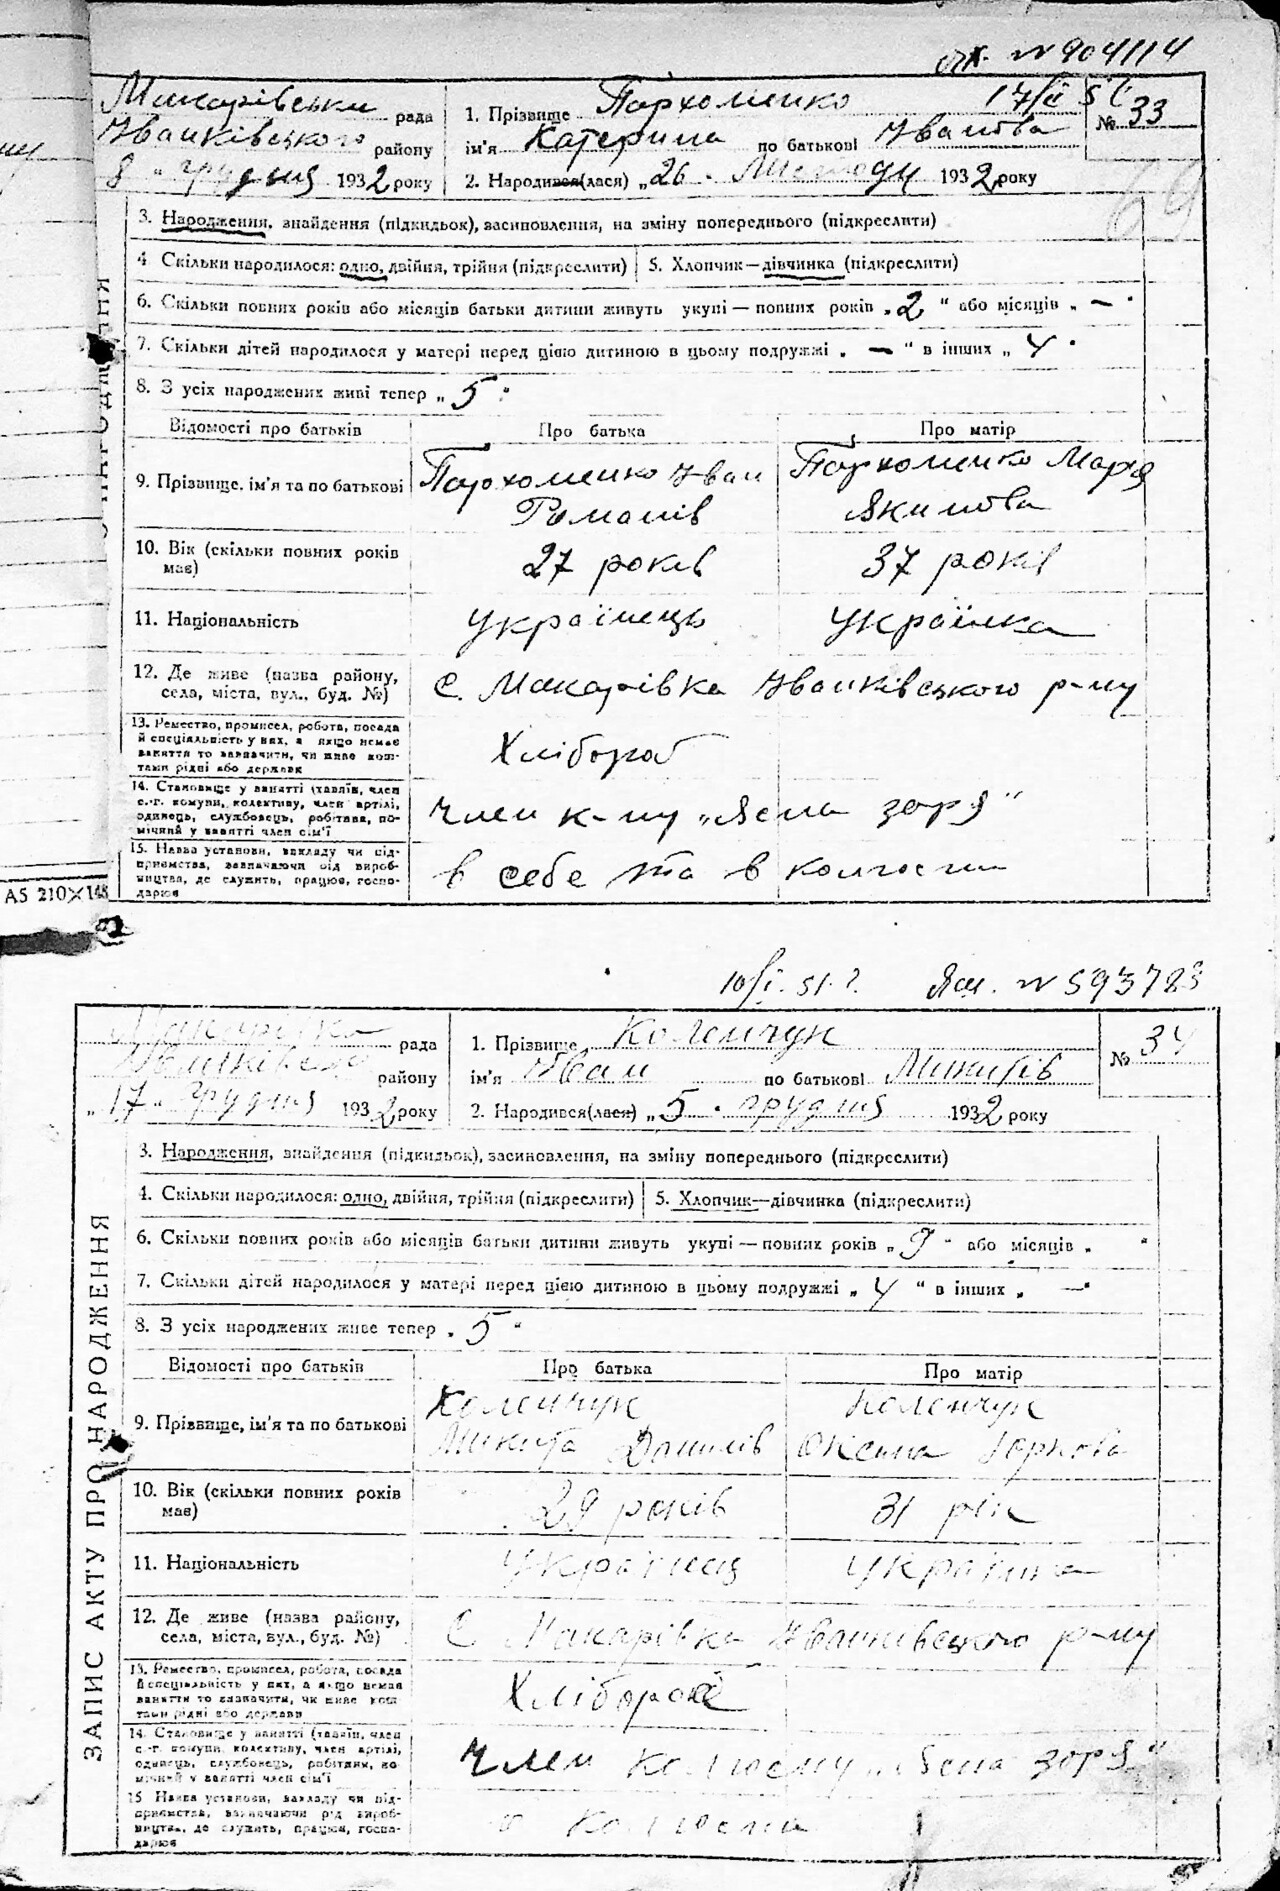 № 904114
Макарівська рада
Іванківського району
8 " грудня 1932 року
1. Прізвище Пархоменко
ім'я Катерина по батькові Іванова
2. Народився(лася) „26" Листопада 1932 року
№ 33
3. Народження, знайдення (підкидьок), засиновлення, на зміну попереднього (підкреслити)
4. Скільки народилося: одно, двійня, трійня (підкреслити) 5. Хлопчик—дівчинка (підкреслити)
6. Скільки повних років або місяців батьки дитини живуть укупі — повних років „2" або місяців „—"
7. Скільки дітей народилося у матері перед цією дитиною в цьому подружжі „—" в інших „4"
8. З усіх народжених живі тепер „5"
Відомості про батьків Про батька Про матір
9. Прізвище, ім'я та по батькові Пархоменко Іван Пархоменко Марія
Романів Якимова
10. Вік (скільки повних років має) 27 років 37 років
11. Національність Українець Українка
12. Де живе (назва району, села, міста, вул., буд. №) С. Макарівка Іванківського р-ну
13. Ремество, промисел, робота, посада й спеціяльність у них, а якщо немає заняття то зазначити, чи живе коштами рідні або держави Хлібороб
14. Становище у занятті (хазяїн, член с.-г. комуни, колективу, член артілі, одинець, службовець, робітник, помічний у занятті член сім'ї Член к-пу „Ясна зоря"
15. Назва установи, закладу чи підприємства, зазначаючи рід виробництва, де служить, працює, господарює в себе та в колгоспі
А5 210×148
51. № 593783
Макарівка рада
району
„17" грудня 1932 року
1. Прізвище Коленчук
ім'я Іван по батькові Микитів
2. Народився(лася) „5" грудня 1932 року
№ 34
3. Народження, знайдення (підкидьок), засиновлення, на зміну попереднього (підкреслити)
4. Скільки народилося: одно, двійня, трійня (підкреслити) 5. Хлопчик—дівчинка (підкреслити)
6. Скільки повних років або місяців батьки дитини живуть укупі — повних років „9" або місяців „ "
7. Скільки дітей народилося у матері перед цією дитиною в цьому подружжі „4" в інших „—"
8. З усіх народжених живе тепер „5"
Відомості про батьків Про батька Про матір
9. Прізвище, ім'я та по батькові Коленчук Коленчук
Микита Данилів Оксана Юркова
10. Вік (скільки повних років має) 29 років 31 рік
11. Національність Українець Українка
12. Де живе (назва району, села, міста, вул., буд. №) С Макарівка Іванківського р-ну
13. Ремество, промисел, робота, посада й спеціяльність у них, а якщо немає заняття то зазначити, чи живе коштами рідні або держави Хлібороб
14. Становище у занятті (хазяїн, член с.-г. комуни, колективу, член артілі, одинець, службовець, робітник, помічний у занятті член сім'ї Член колгоспу „Ясна зоря"
15 Назва установи, закладу чи підприємства, зазначаючи рід виробництва, де служить, працює, господарює в колгоспі
ЗАПИС АКТУ ПРО НАРОДЖЕННЯ